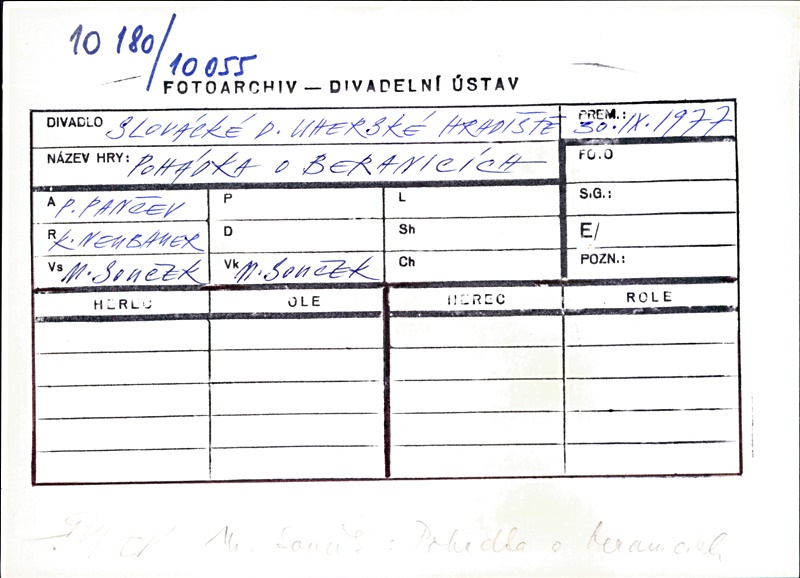 10 180/
10 055
FOTOARCHIV — DIVADELNÍ ÚSTAV
DIVADLO SLOVÁCKÉ D. UHERSKÉ HRADIŠTĚ PREM.: 30.IX.1977
NÁZEV HRY: POHÁDKA O BERANICÍCH FOTO
A P. PANČEV P L SIG.:
R K. NEUBAUER D Sh E/
Vs M. SONČEK Vk M. SONČEK Ch POZN.:
HEREC OLE HEREC ROLE
Pohádka o beranicích